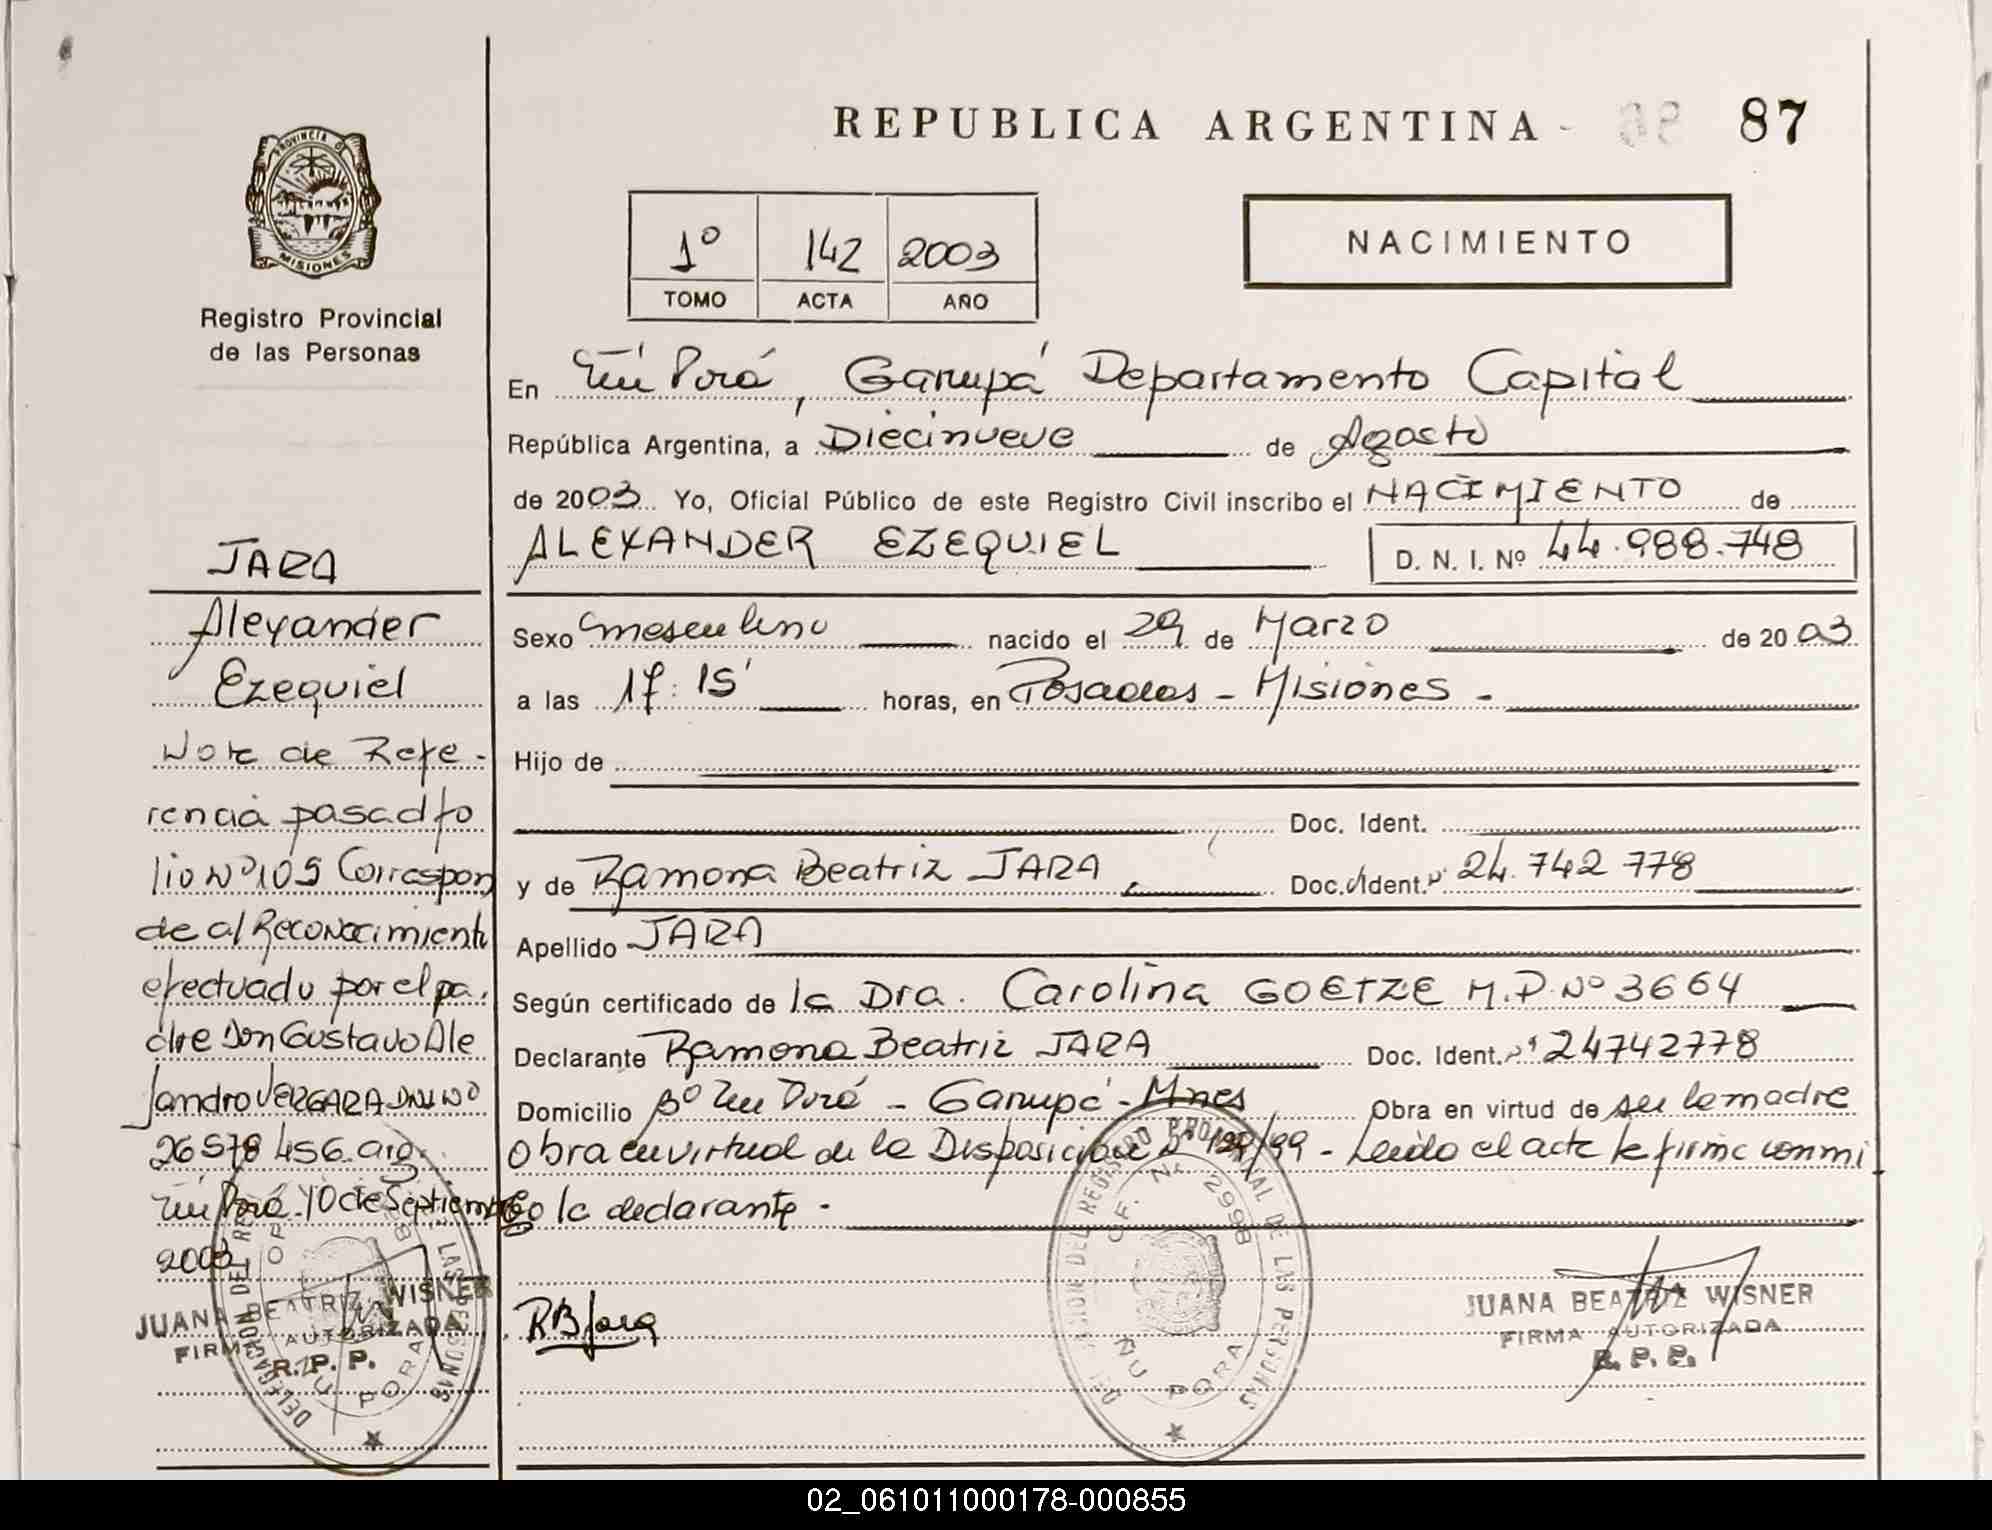 REPUBLICA ARGENTINA - 87
PROVINCIA DE
MISIONES
Registro Provincial
de las Personas
1º 142 2003
TOMO ACTA AÑO
NACIMIENTO
En Ñu Porá, Garupá Departamento Capital
República Argentina, a Diecinueve de Agosto
de 2003 Yo, Oficial Público de este Registro Civil inscribo el NACIMIENTO de
ALEXANDER EZEQUIEL D. N. I. Nº 44.988.748
Sexo masculino nacido el 29 de Marzo de 2003
a las 17:15' horas, en Posadas - Misiones -
Hijo de
Doc. Ident.
y de Ramona Beatriz JARA Doc. Ident. Nº 24.742 778
Apellido JARA
Según certificado de la Dra. Carolina GOETZE M.P. Nº 3664
Declarante Ramona Beatriz JARA Doc. Ident. Nº 24742778
Domicilio Bº Ñu Porá - Garupá - Mnes Obra en virtud de ser la madre
Obra en virtud de la Disposición /99 - Leido el acta la firma conmi
go la declarante -
RBJara
DELEGACION DEL REGISTRO PROVINCIAL DE LAS PERSONAS
OF. Nº 2998
ÑU PORA
JUANA BEATRIZ WISNER
FIRMA AUTORIZADA
R. P. P.
JARA
Alexander
Ezequiel
Nota de Refe-
rencia pasad fo
lio Nº 105 Correspon
de al Reconocimiento
efectuado por el pa
dre Don Gustavo Ale
jandro VERGARA DNI Nº
26 578 456. arg.
Ñu Porá 10 de Septiembre
2003
JUANA BEATRIZ WISNER
FIRMA AUTORIZADA
R. P. P.
DELEGACION DEL REGISTRO LAS PERSONAS
ÑU PORA
02_061011000178-000855